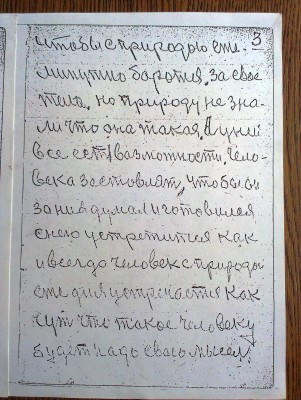 3
чтобы с природою еже-
минутно боротся. за свое
тела. но природу не зна-
ли что она такая. А у них
все есть возможности. чело-
века заставлят, чтобы он
за них думал и готовился
с нею устретится как
и всегдо человек с природы
еже дня устречается как
тут что такое человеку
будет надо свою мысел.